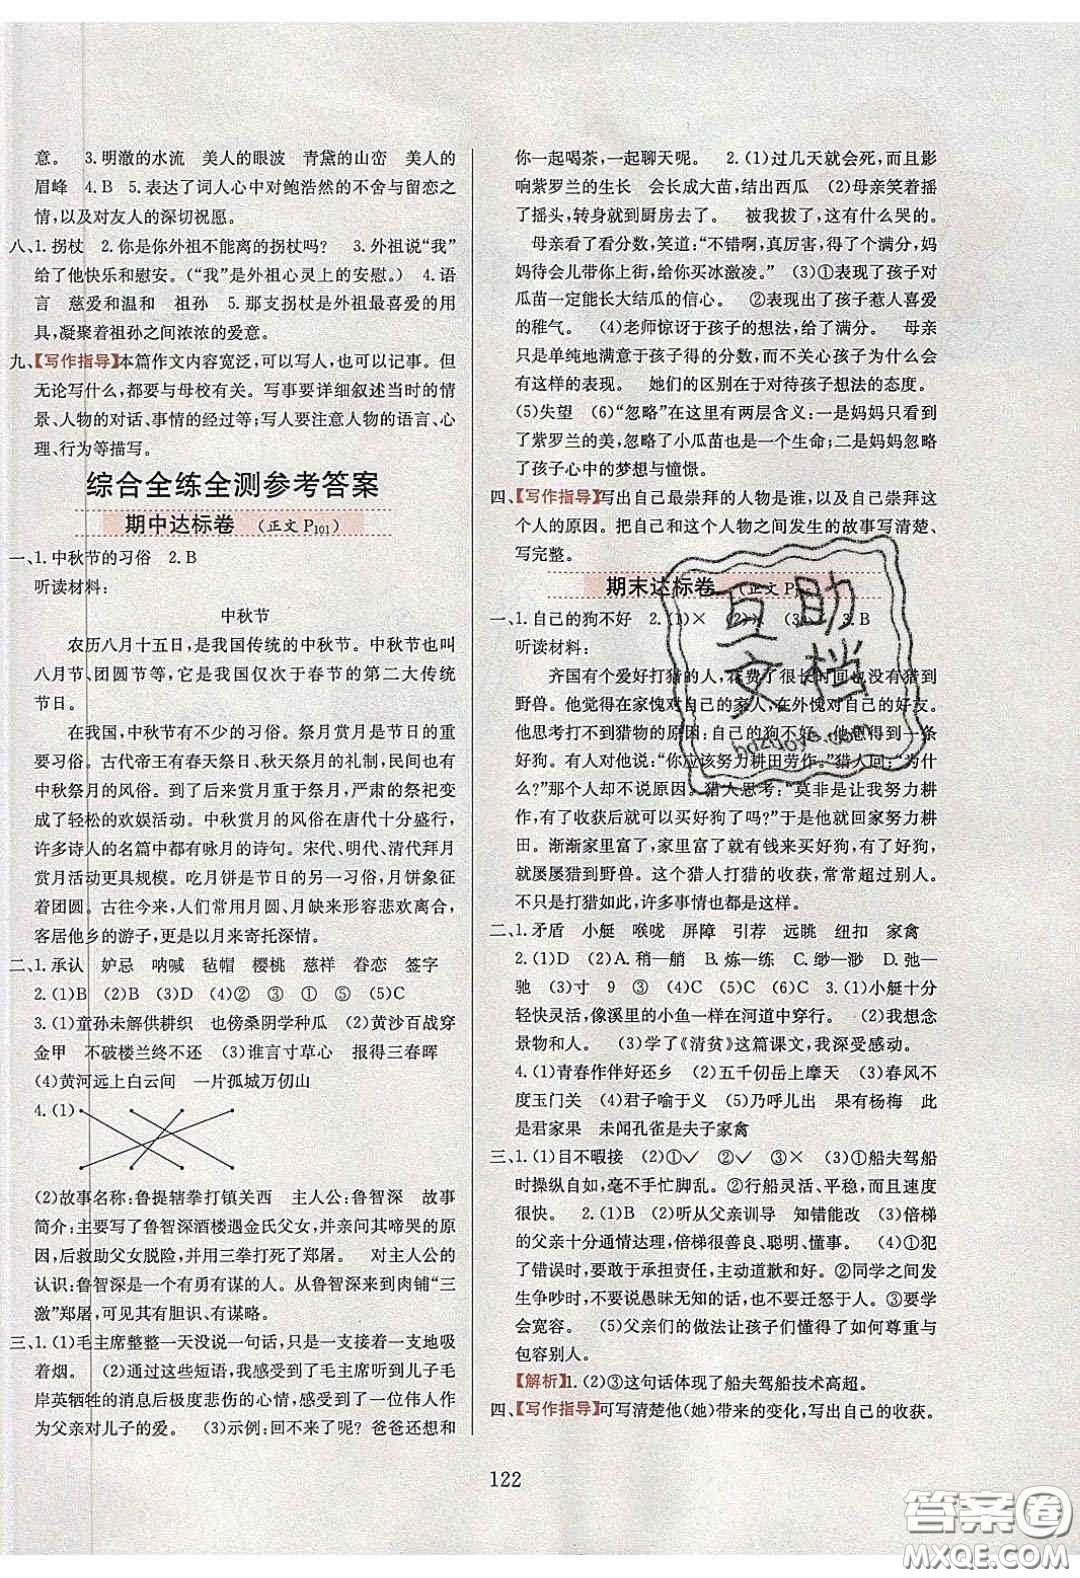 意。 3.明澈的水流 美人的眼波 青黛的山峦 美人的
眉峰 4.B 5.表达了词人心中对鲍浩然的不舍与留恋之
情,以及对友人的深切祝愿。
八、1.拐杖 2.你是你外祖不能离的拐杖吗? 3.外祖说“我”
给了他快乐和慰安。(“我”是外祖心灵上的安慰) 4.语
言 慈爱和温和 祖孙 5.那支拐杖是外祖最喜爱的用
具,凝聚着祖孙之间浓浓的爱意。
九、【写作指导】本篇作文内容宽泛,可以写人,也可以记事。但
无论写什么,都要与母校有关。写事要详细叙述当时的情
景、人物的对话、事情的经过等;写人要注意人物的语言、心
理、行为等描写。
综合全练全测参考答案
期中达标卷 (正文 P101)
一、1.中秋节的习俗 2.B
听读材料:
中秋节
农历八月十五日,是我国传统的中秋节。中秋节也叫
八月节、团圆节等,它是我国仅次于春节的第二大传统
节日。
在我国,中秋节有不少的习俗。祭月赏月是节日的重
要习俗。古代帝王有春天祭日、秋天祭月的礼制,民间也有
中秋祭月的风俗。到了后来赏月重于祭月,严肃的祭祀变
成了轻松的欢娱活动。中秋赏月的风俗在唐代十分盛行,
许多诗人的名篇中都有咏月的诗句。宋代、明代、清代拜月
赏月活动更具规模。吃月饼是节日的另一习俗,月饼象征
着团圆。古往今来,人们常用月圆、月缺来形容悲欢离合,
客居他乡的游子,更是以月来寄托深情。
二、1.承认 妒忌 呐喊 毡帽 樱桃 慈祥 眷恋 签字
2.(1)B (2)B (3)D (4)② ③ ① ⑤ (5)C
3.(1)童孙未解供耕织 也傍桑阴学种瓜 (2)黄沙百战穿
金甲 不破楼兰终不还 (3)谁言寸草心 报得三春晖
(4)黄河远上白云间 一片孤城万仞山
4.(1)
(2)故事名称:鲁提辖拳打镇关西 主人公:鲁智深 故事
简介:主要写了鲁智深酒楼遇金氏父女,并亲问其啼哭的原
因,后救助父女脱险,并用三拳打死了郑屠。 对主人公的
认识:鲁智深是一个有勇有谋的人。从鲁智深来到肉铺“三
激”郑屠,可见其有胆识、有谋略。
三、1.(1)毛主席整整一天没说一句话,只是一支接着一支地吸
着烟。 (2)通过这些短语,我感受到了毛主席听到儿子毛
岸英牺牲的消息后极度悲伤的心情,感受到了一位伟人作
为父亲对儿子的爱。 (3)示例:回来了呢? 爸爸还想和
你一起喝茶,一起聊天呢。 2.(1)过几天就会死,而且影
响紫罗兰的生长 会长成大苗,结出西瓜 (2)母亲笑着摇
了摇头,转身就到厨房去了。 被我逮住,这有什么哭的。
母亲看了看分数,笑道:“不错啊,真厉害,得了满分,妈
妈待会儿带你上街,给你买冰激凌。” (3)①表现出了孩子
对瓜苗一定能长大结瓜的信心。 ②表现出了孩子惹人喜爱
的稚气。 (4)老师惊讶于孩子的想法,给了满分。 母亲
只是单纯地满意于孩子得的分数,而不关心孩子为什么会
有这样的表现。 她们的区别在于对待孩子想法的态度。
(5)失望 (6)“忽略”在这里有两层含义:一是妈妈只看到
了紫罗兰的美,忽略了小瓜苗也是一个生命;二是妈妈忽略
了孩子心中的梦想与憧憬。
四、【写作指导】写出自己最崇拜的人物是谁,以及自己崇拜这
个人的原因。把自己和这个人物之间发生的故事写清楚、
写完整。
期末达标卷 (正文 P
一、1.自己的狗不好 2.(1)× (2)× (3) 3.B
听读材料:
齐国有个爱好打猎的人,花费了很长时间也没有猎到
野兽。他在家愧对自己的家人,在外愧对自己的好友。
他思考打不到猎物的原因:自己的狗不好。他想得到一条
好狗。有人对他说:“你应该努力耕田劳作。”猎人回:“为什
么?”那个人却不说原因。猎人思考:“莫非是让我努力耕
作,有了收获后可以买好狗了吗?”于是他就回家努力耕
田。渐渐家里富了,家里富了就有钱来买好狗。有了好狗,
就屡屡猎到野兽。这个猎人打猎的收获,常常超过别人。
不只是打猎如此,许多事情也都是这样。
二、1.矛盾 小艇 喉咙 屏障 引荐 远眺 纽扣 家禽
2.(1)D (2)A.稍—艄 B.炼—练 C.缈—渺 D.弛—
驰 (3)寸 9 ③ (4)C 3.(1)小艇十分
轻快灵活,像溪里的小鱼一样在河道中穿行。 (2)我想念
景物和人。 (3)学了《清贫》这篇课文,我深受感动。
4.(1)青春作伴好还乡 (2)五千仞岳上摩天 (3)春风不
度玉门关 (4)君子喻于义 (5)乃呼儿出 果有杨梅 此
是君家果 未闻孔雀是夫子家禽
三、1.(1)目不暇接 (2)①✓ ②✓ ③× (3)①船夫驾船
时操纵自由,毫不手忙脚乱。②行船灵活、平稳,而且速度
很快。 2.(1)B (2)听从父亲训导 知错能改 (3)倍梯
的父亲十分通情达理,倍梯很善良、聪明、懂事。 (4)①犯
了错误时,要勇于承担责任,主动道歉和好。②同学之间发
生争吵时,不要说愚昧无知的话,也不要迁怒于人。③要学
会宽容。 (5)父亲们的做法让孩子们懂得了如何尊重与
包容别人。
【解析】1.(2)③这句话体现了船夫驾船技术高超。
四、【写作指导】可写清楚他(她)带来的变化,写出自己的收获。
122
互助
文档
hdzuoye.com
答案圈
MXQE.COM